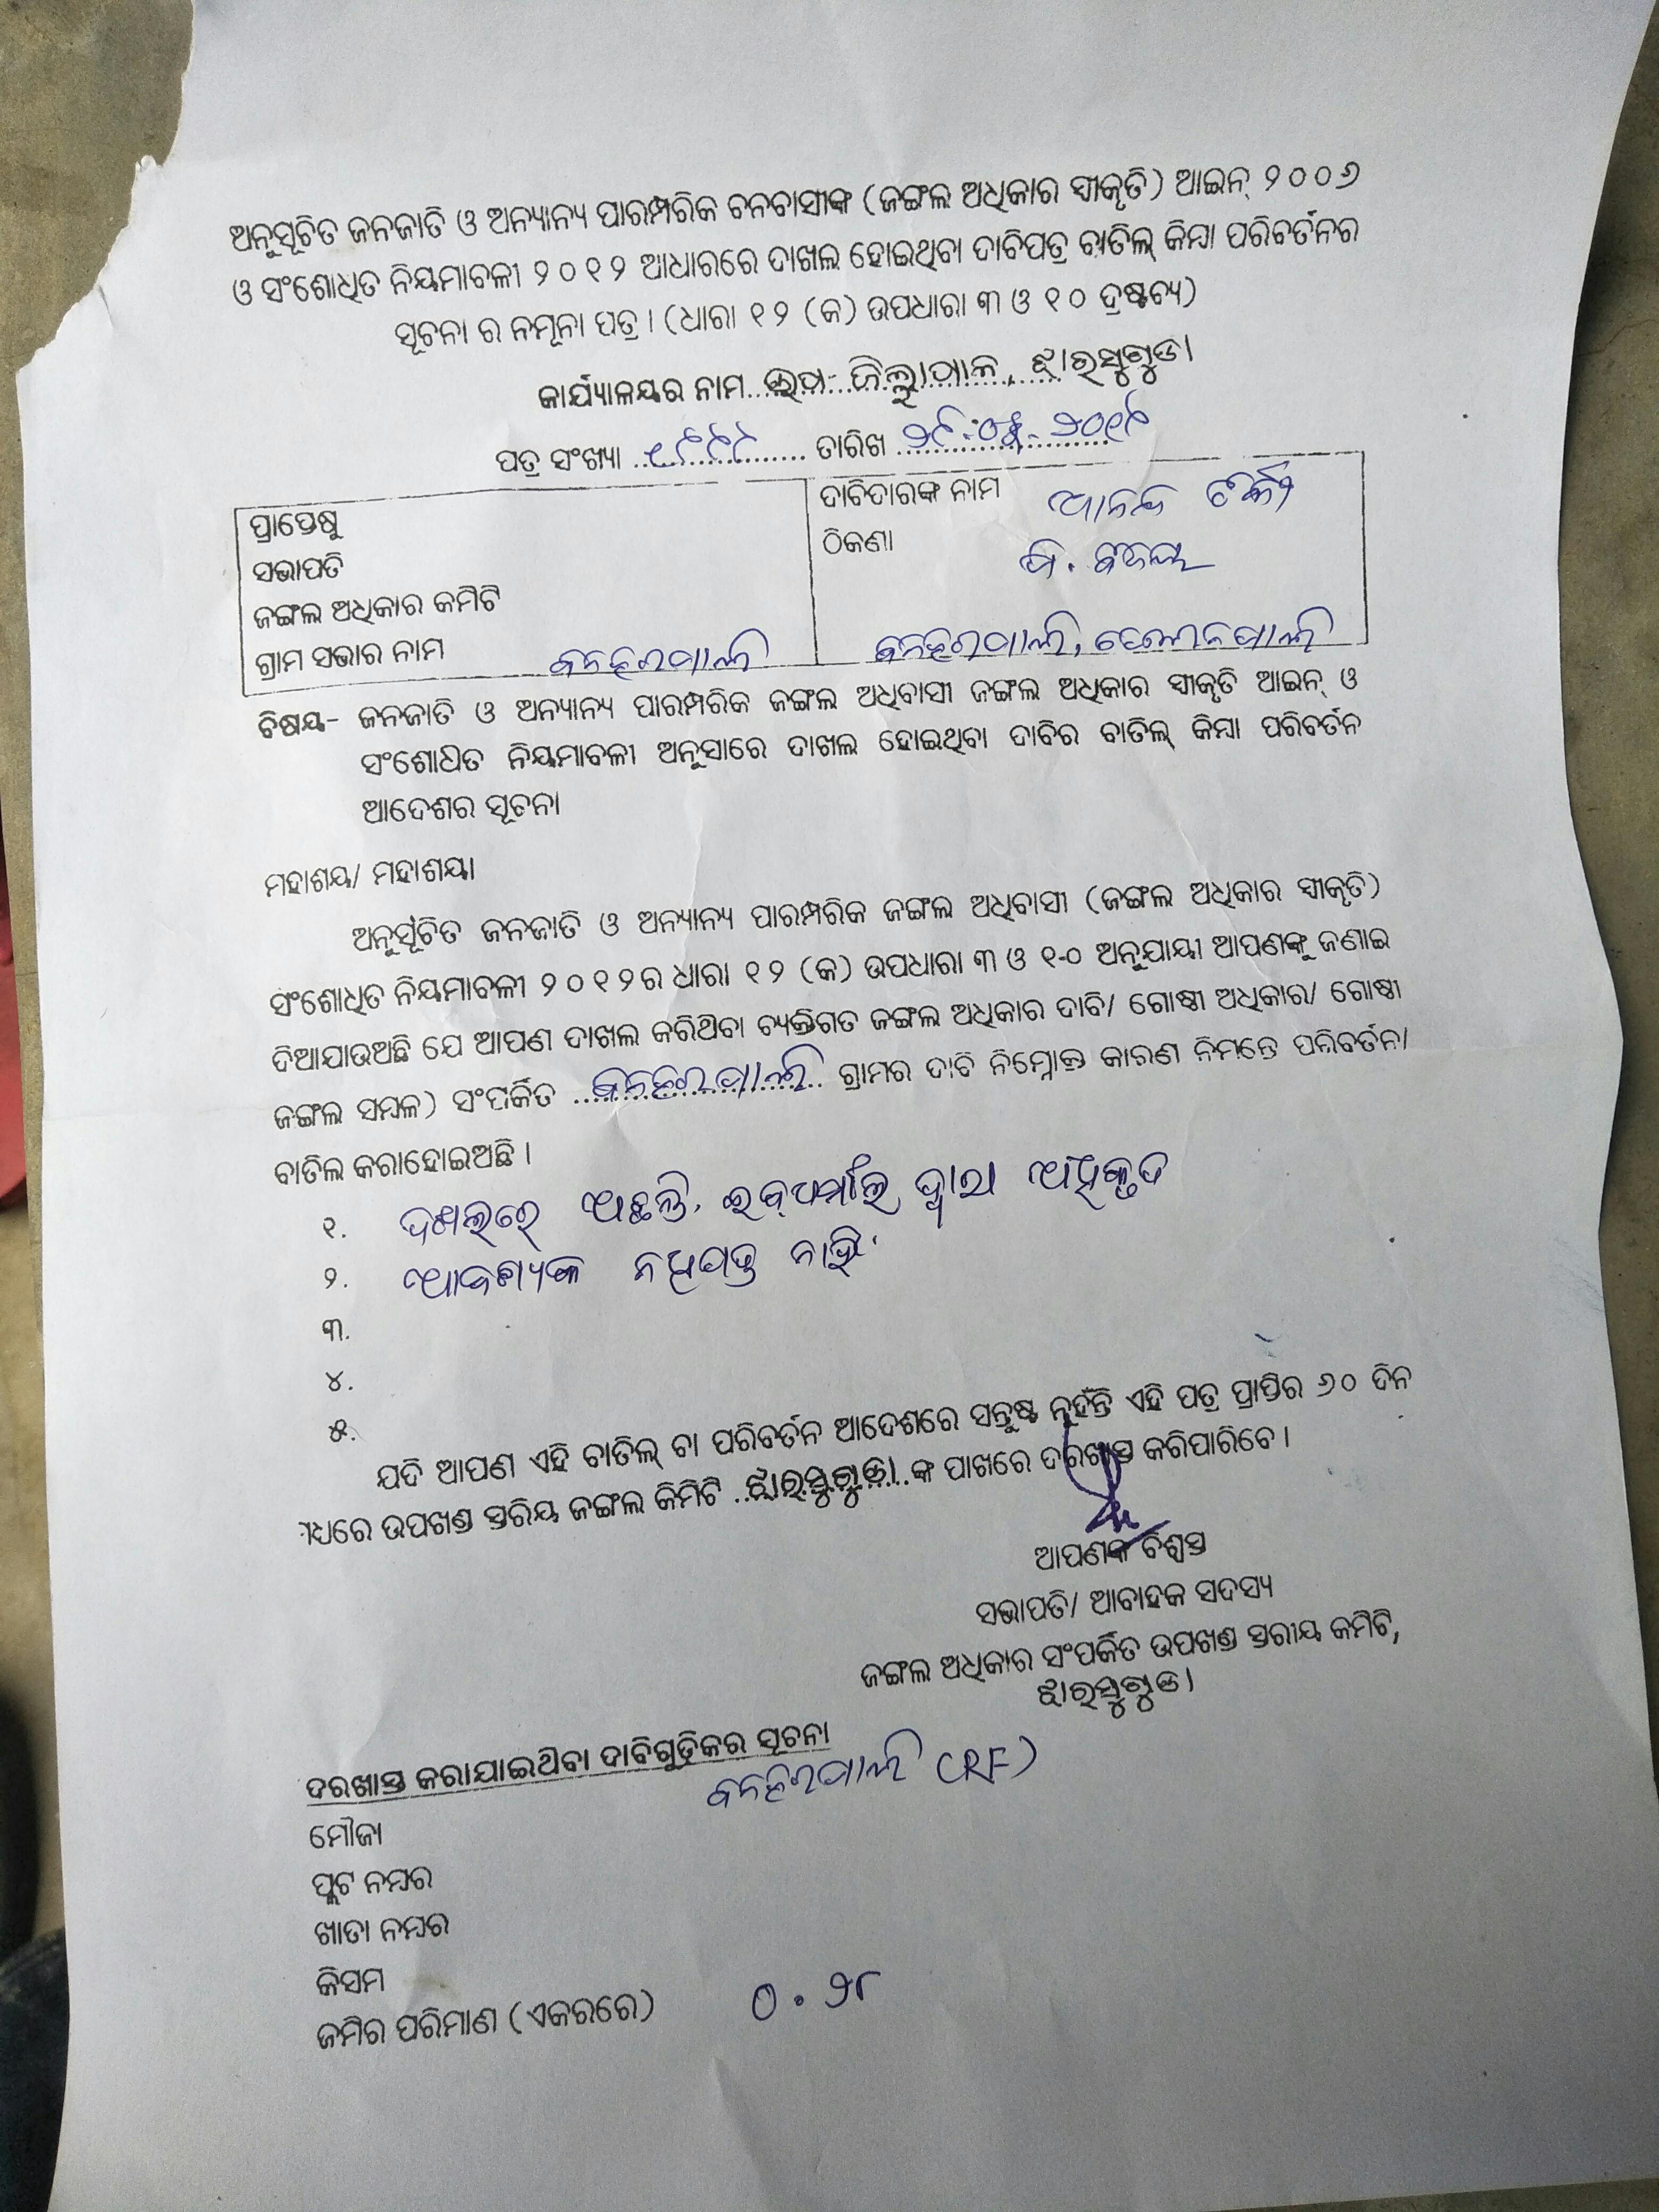 ଅନୁସୂଚିତ ଜନଜାତି ଓ ଅନ୍ୟାନ୍ୟ ପାରମ୍ପରିକ ବନବାସୀଙ୍କ (ଜଙ୍ଗଲ ଅଧିକାର ସ୍ୱୀକୃତି) ଆଇନ୍ ୨୦୦୬
ଓ ସଂଶୋଧିତ ନିୟମାବଳୀ ୨୦୧୨ ଆଧାରରେ ଦାଖଲ ହୋଇଥିବା ଦାବିପତ୍ର ବାତିଲ୍ କିମ୍ବା ପରିବର୍ତନର
ସୂଚନା ର ନମୂନା ପତ୍ର । (ଧାରା ୧୨ (କ) ଉପଧାରା ୩ ଓ ୧୦ ଦ୍ରଷ୍ଟବ୍ୟ)
କାର୍ଯ୍ୟାଳୟର ନାମ ଉପ-ଜିଲ୍ଲାପାଳ, ଝାରସୁଗୁଡା
ପତ୍ର ସଂଖ୍ୟା ତାରିଖ
ପ୍ରାପ୍ତେଷୁ
ସଭାପତି
ଜଙ୍ଗଲ ଅଧିକାର କମିଟି
ଗ୍ରାମ ସଭାର ନାମ ବନହରପାଲି
ଦାବିଦାରଙ୍କ ନାମ
ଠିକଣା
ବନହରପାଲି,
ବିଷୟ- ଜନଜାତି ଓ ଅନ୍ୟାନ୍ୟ ପାରମ୍ପରିକ ଜଙ୍ଗଲ ଅଧିବାସୀ ଜଙ୍ଗଲ ଅଧିକାର ସ୍ୱୀକୃତି ଆଇନ୍ ଓ
ସଂଶୋଧିତ ନିୟମାବଳୀ ଅନୁସାରେ ଦାଖଲ ହୋଇଥିବା ଦାବିର ବାତିଲ୍ କିମ୍ବା ପରିବର୍ତନ
ଆଦେଶର ସୂଚନା
ମହାଶୟ/ ମହାଶୟା
ଅନୁସୂଚିତ ଜନଜାତି ଓ ଅନ୍ୟାନ୍ୟ ପାରମ୍ପରିକ ଜଙ୍ଗଲ ଅଧିବାସୀ (ଜଙ୍ଗଲ ଅଧିକାର ସ୍ୱୀକୃତି)
ସଂଶୋଧିତ ନିୟମାବଳୀ ୨୦୧୨ର ଧାରା ୧୨ (କ) ଉପଧାରା ୩ ଓ ୧୦ ଅନୁଯାୟୀ ଆପଣଙ୍କୁ ଜଣାଇ
ଦିଆଯାଉଅଛି ଯେ ଆପଣ ଦାଖଲ କରିଥିବା ବ୍ୟକ୍ତିଗତ ଜଙ୍ଗଲ ଅଧିକାର ଦାବି/ ଗୋଷ୍ଠୀ ଅଧିକାର/ ଗୋଷ୍ଠୀ
ଜଙ୍ଗଲ ସମ୍ବଳ) ସଂପର୍କିତ ବନହରପାଲି ଗ୍ରାମର ଦାବି ନିମ୍ନୋକ୍ତ କାରଣ ନିମନ୍ତେ ପରିବର୍ତନ/
ବାତିଲ କରାହୋଇଅଛି ।
୧. ଦଖଲରେ ଅଛନ୍ତି, ଦ୍ୱାରା ଅଧିକୃତ
୨. ଆବଶ୍ୟକ ନଥିପତ୍ର ନାହିଁ
୩.
୪.
୫.
ଯଦି ଆପଣ ଏହି ବାତିଲ୍ ବା ପରିବର୍ତନ ଆଦେଶରେ ସନ୍ତୁଷ୍ଟ ନୁହଁନ୍ତି ଏହି ପତ୍ର ପ୍ରାପ୍ତିର ୬୦ ଦିନ
ଧରେ ଉପଖଣ୍ଡ ସ୍ତରିୟ ଜଙ୍ଗଲ କିମିଟି ଝାରସୁଗୁଡା ଙ୍କ ପାଖରେ ଦରଖାସ୍ତ କରିପାରିବେ ।
ଆପଣଙ୍କ ବିଶ୍ୱସ୍ତ
ସଭାପତି/ ଆବାହକ ସଦସ୍ୟ
ଜଙ୍ଗଲ ଅଧିକାର ସଂପର୍କିତ ଉପଖଣ୍ଡ ସ୍ତରୀୟ କମିଟି,
ଝାରସୁଗୁଡା
ଦରଖାସ୍ତ କରାଯାଇଥିବା ଦାବିଗୁଡ଼ିକର ସୂଚନା
ବନହରପାଲି (RF)
ମୌଜା
ପ୍ଲଟ ନମ୍ବର
ଖାତା ନମ୍ବର
କିସମ
ଜମିର ପରିମାଣ (ଏକରରେ) ୦.୨୮